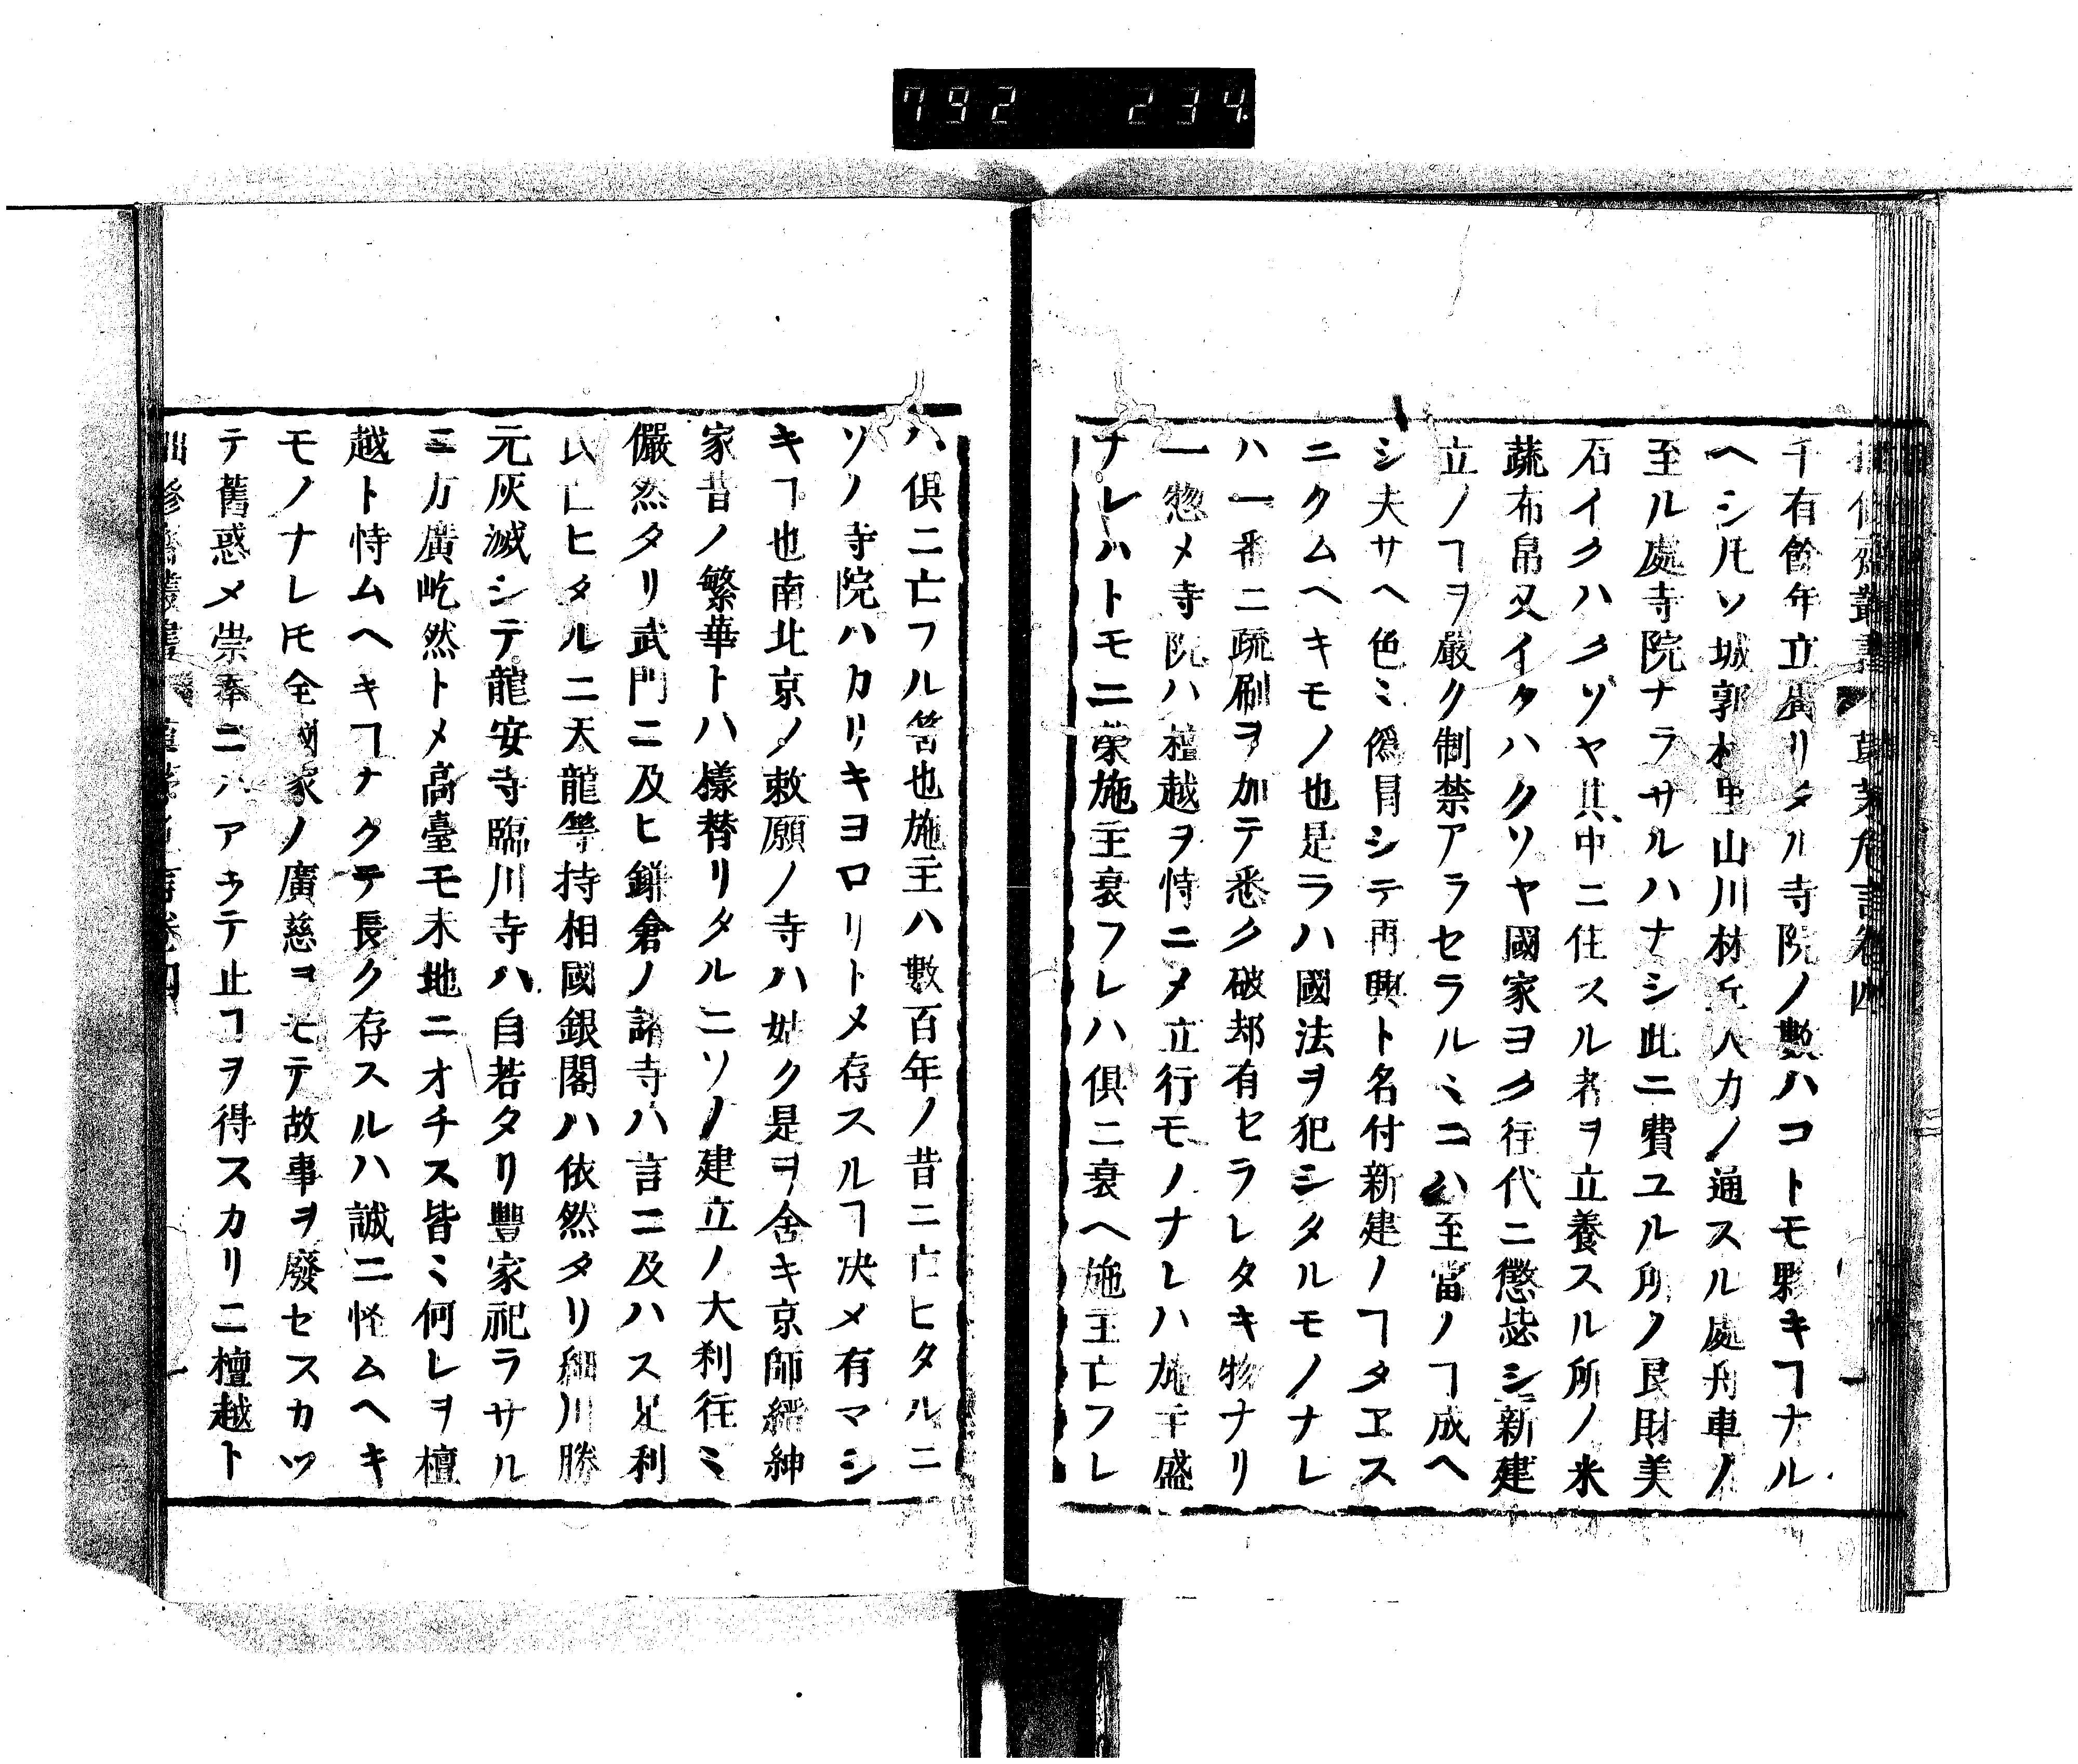 792 234
千有餘年立廣リタル寺院ノ數ハコトモ夥キヿナル
ヘシ凡ソ城郭村里山川林丘人力ノ通スル處舟車ノ
至ル處寺院ナラサルハナシ此ニ費ユル所ノ良財美
石イクハクゾヤ其中ニ住スル者ヲ立養スル所ノ米
蔬布帛又イクハクソヤ國家ヨク徃代ニ懲毖シ新建
立ノヿヲ嚴ク制禁アラセラルミコハ至當ノヿ成ヘ
シ夫サヘ色ミ僞冒シテ再興ト名付新建ノヿタヱス
ニクムヘキモノ也是ラハ國法ヲ犯シタルモノナレ
ハ一番ニ疏刷ヲ加テ悉ク破却有セラレタキ物ナリ
一惣メ寺院ハ檀越ヲ恃ニメ立行モノナレハ施主盛
ナレハトモニ榮施主衰フレハ俱ニ衰ヘ施主亡フレ
ハ俱ニ亡フル筈也施主ハ數百年ノ昔ニ亡ヒタルニ
ソノ寺院ハカリキヨロリトメ存スルヿ决メ有マシ
キヿ也南北京ノ敕願ノ寺ハ姑ク是ヲ舍キ京師縉紳
家昔ノ繁華トハ樣替リタルニソノ建立ノ大刹徃ミ
儼然タリ武門ニ及ヒ鎌倉ノ諸寺ハ言ニ及ハス足利
氏亡ヒタルニ天龍等持相國銀閣ハ依然タリ細川勝
元灰滅シテ龍安寺臨川寺ハ自若タリ豐家祀ラサル
ニ方廣屹然トメ高臺モ未地ニオチス皆ミ何レヲ檀
越ト恃ムヘキヿナクテ長ク存スルハ誠ニ怪ムヘキ
モノナレ𪜈全國家ノ廣慈ヲモテ故事ヲ廢セスカツ
テ舊惑メ崇奉ニハアラテ止ヿヲ得スカリニ檀越ト